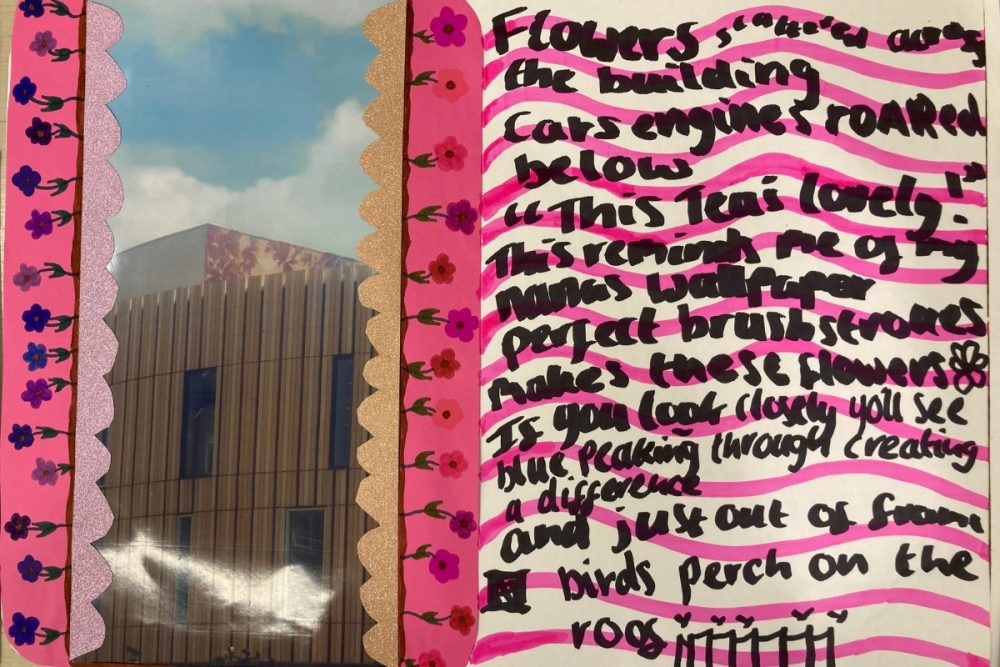 Flowers scattered across
the building
Cars engines ROARED
below
"This Teai lovely!"
This reminds me of my
nanas wallpaper
perfect brushstrokes
makes these flowers
Is you look closely you'll see
blue peaking through creating
a difference
and just out of frame
birds perch on the
roof